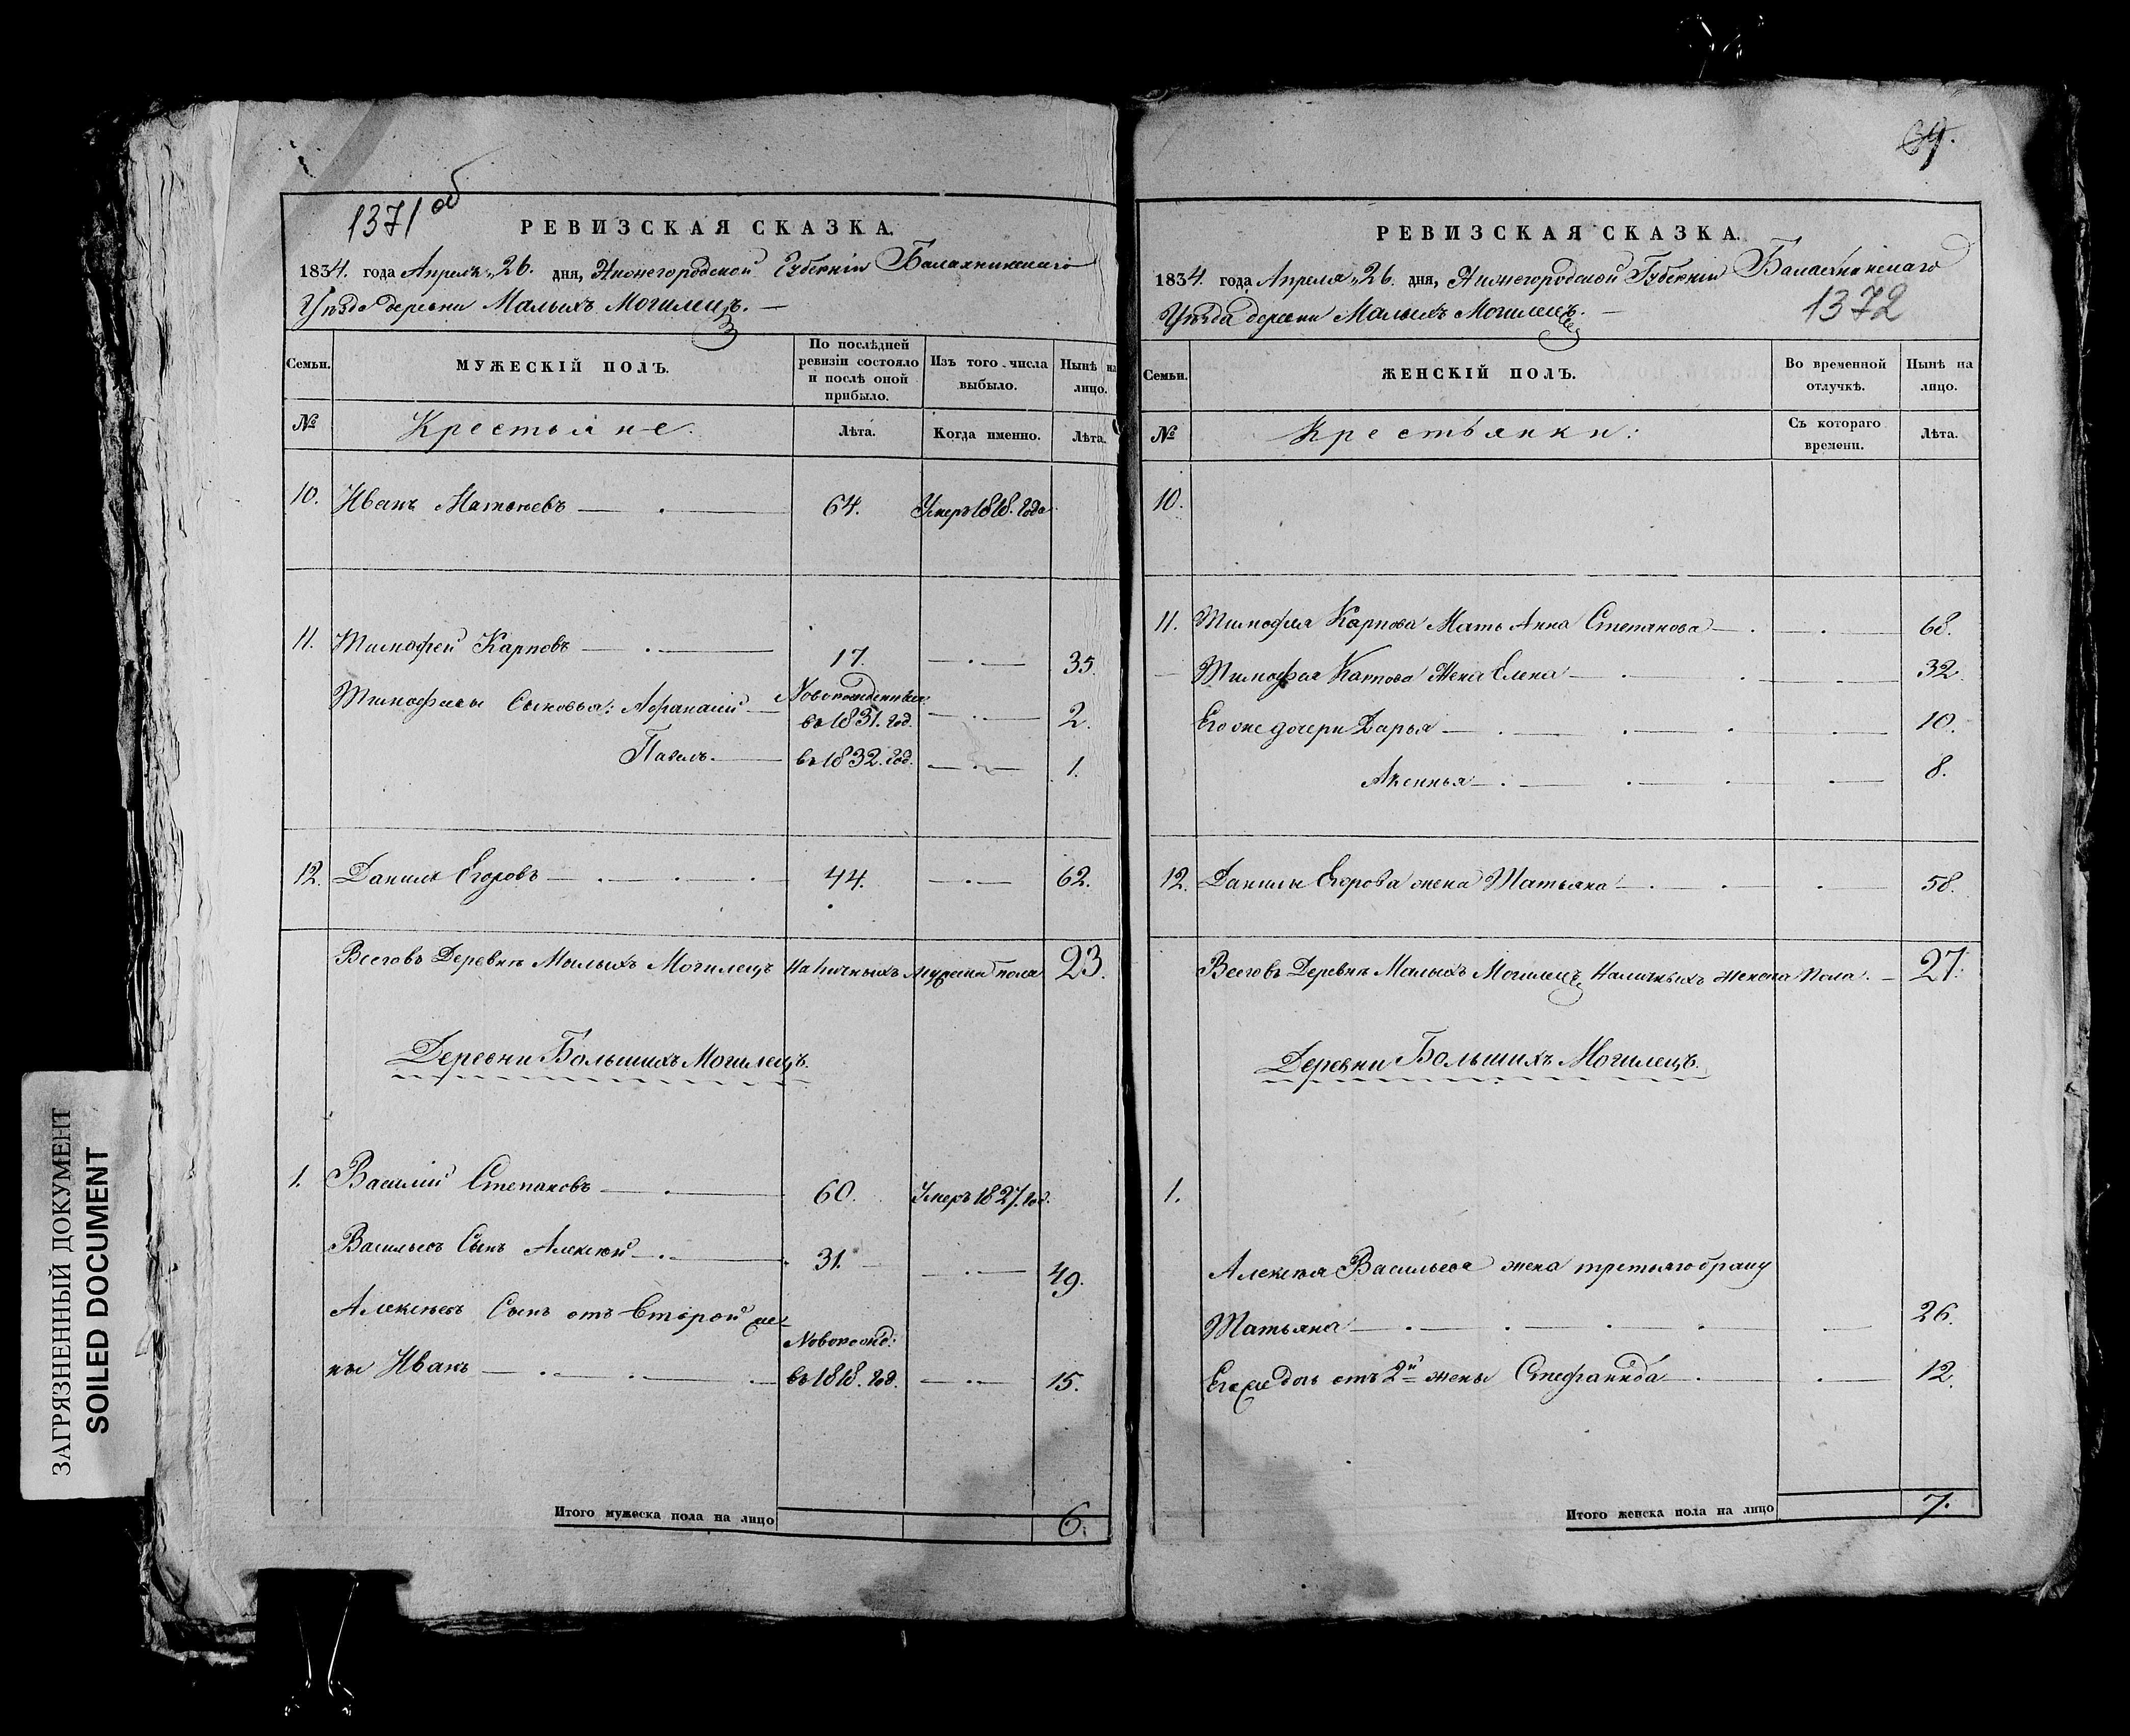 1371 об
РЕВИЗСКАЯ СКАЗКА.
1834. года Апреля „26. дня, Нижегородской Губерніи Балахнинскаго
Уѣзда деревни Малыхъ Могилецъ. —
Семьи.
МУЖЕСКІЙ ПОЛЪ.
По послѣдней
ревизіи состояло
и послѣ оной
прибыло.
Изъ того числа
выбыло.
Нынѣ на
лицо.
№
Крестьяне.
Лѣта.
Когда именно.
Лѣта.
10. Иванъ Матвѣевъ — . — 64. Умеръ 1818. года
11. Тимофей Карповъ — . — 17. — . — 35.
Тимофеевы Сыновья: Афанасій — Новорожденные
въ 1831. год. — . — 2.
Павелъ. — въ 1832. год. — . — 1.
12. Данила Егоровъ — . — . — . 44. — . — 62.
Всего въ Деревнѣ Малыхъ Могилецъ Наличныхъ мужеска пола 23.
Деревни Большихъ Могилецъ.
1. Василій Степановъ — . — 60. Умеръ 1827. год.
Васильевъ Сынъ Алексѣй — . — 31. — . — 49.
Алексѣевъ Сынъ отъ второй же-
Новорожд:
ны Иванъ — . — . — . — въ 1818. год. — . — 15.
Итого мужеска пола на лицо 6.
69.
РЕВИЗСКАЯ СКАЗКА.
1834 года Апреля „26. дня, Нижегородской Губерніи Балахнинскаго
Уѣзда деревни Малыхъ Могилецъ. —
1372
Семьи.
ЖЕНСКІЙ ПОЛЪ.
Во временной
отлучкѣ.
Нынѣ на
лицо.
№
Крестьянки:
Съ котораго
времени.
Лѣта.
10.
11. Тимофея Карпова Мать Анна Степанова — . — . — 68.
Тимофея Карпова Жена Елена — . — . — 32.
Его же дочери Дарья — . — . — 10.
Аксинья — . — . — 8.
12. Данилы Егорова жена Татьяна — . . . 58.
Всего въ Деревнѣ Малыхъ Могилецъ Наличныхъ женска Пола. — 27.
Деревни Большихъ Могилецъ.
1.
Алексѣя Васильева жена третьяго браку
Татьяна — . — . — . — 26.
Его же дочь отъ 2й жены Стефанида — . . — 12.
Итого женска пола на лицо 7.
ЗАГРЯЗНЕННЫЙ ДОКУМЕНТ
SOILED DOCUMENT